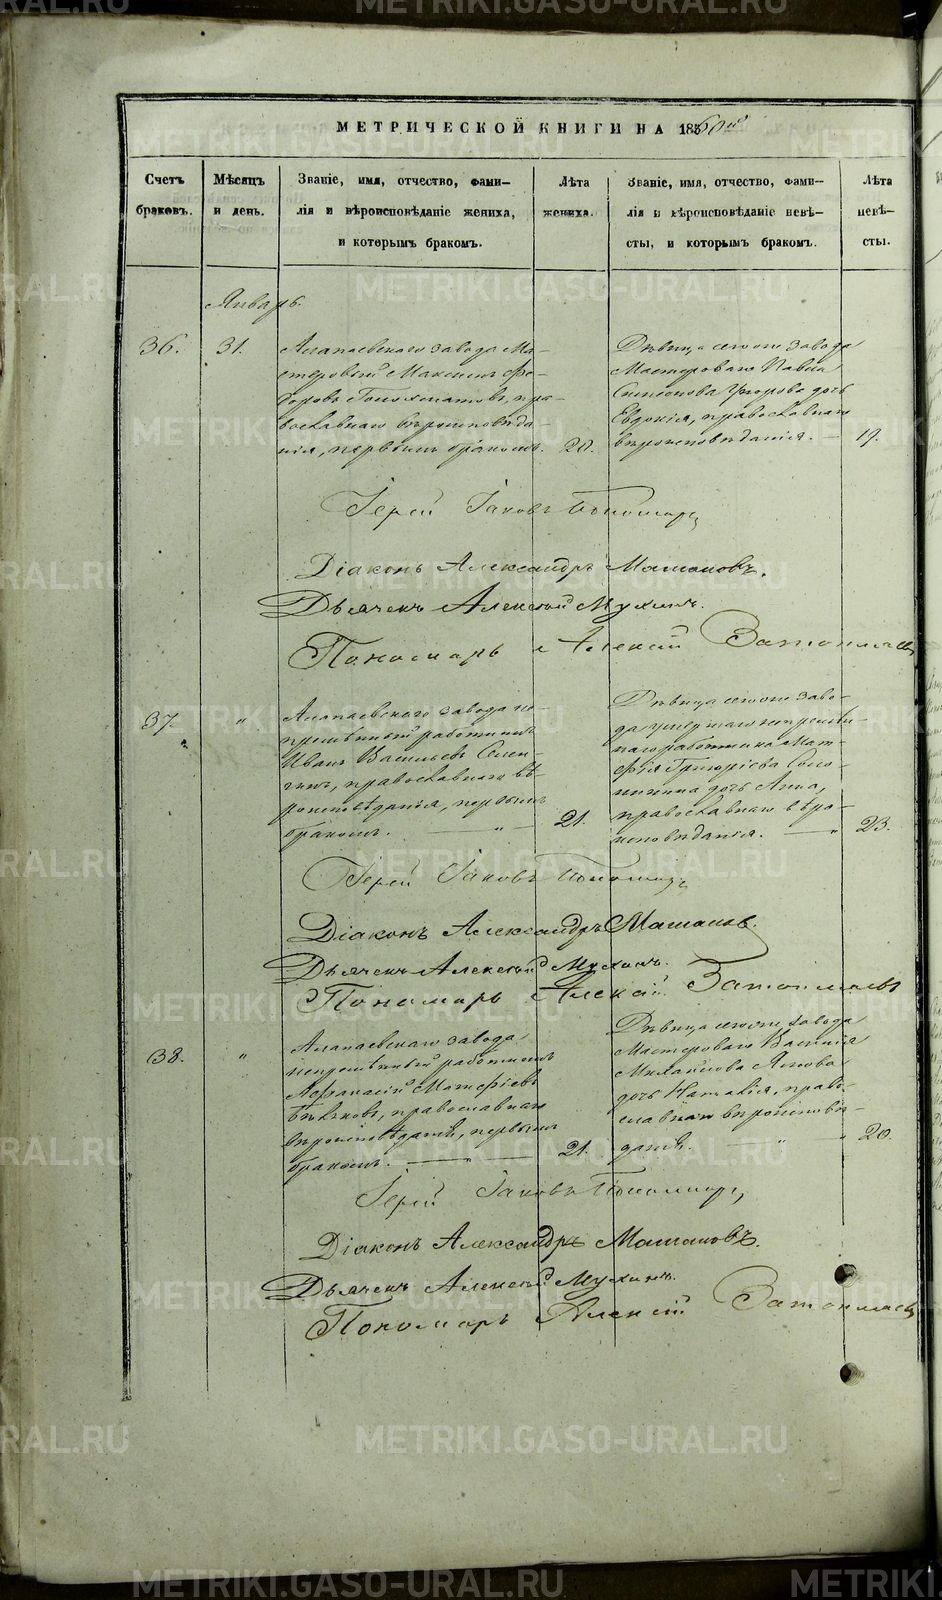 МЕТРИЧЕСКОЙ КНИГИ НА 1860й
Счетъ браковъ.
Мѣсяцъ и день.
Званіе, имя, отчество, фами-
лія и вѣроисповѣданіе жениха,
и которымъ бракомъ.
Лѣта жениха.
Званіе, имя, отчество, фами-
лія и вѣроисповѣданіе невѣ-
сты, и которымъ бракомъ.
Лѣта невѣ-
сты.
Январь.
36.
31.
Алапаевскаго завода Ма-
стеровый Максимъ Фе-
доровъ пра-
вославнаго вѣроисповѣда-
нія, первымъ бракомъ.
20.
Дѣвица сегоже завода
Мастероваго Павла
дочь
Евдокія, православнаго
вѣроисповѣданія.
19.
Іерей Іаковъ Пономаревъ
Діаконъ Александръ Мамаковъ.
Дьячекъ Алексѣй Мухинъ.
Пономарь Алексій Затопляевъ
37.
"
Алапаевскаго завода не-
премѣнный работникъ
Иванъ Васильевъ
православнаго вѣ-
роисповѣданія, первымъ
бракомъ. "
21.
Дѣвица сегоже заво-
да умершаго непремѣн-
наго работника Мат-
фія Григоріева
дочь Анна,
православнаго вѣро-
исповѣданія. "
23.
Іерей Іаковъ Пономаревъ
Діаконъ Александръ Мамаковъ.
Дьячекъ Алексѣй Мухинъ.
Пономарь Алексій Затопляевъ
38.
"
Алапаевскаго завода
непремѣнный работникъ
Афанасій Матфіевъ
православнаго
вѣроисповѣданія, первымъ
бракомъ. "
21.
Дѣвица сегоже завода
Мастероваго Василія
Михайлова
дочь Наталія, право-
славнаго вѣроисповѣ-
данія. " "
20.
Іерей Іаковъ Пономаревъ
Діаконъ Александръ Мамаковъ.
Дьячекъ Алексѣй Мухинъ.
Пономарь Алексій Затопляевъ
METRIKI.GASO-URAL.RU